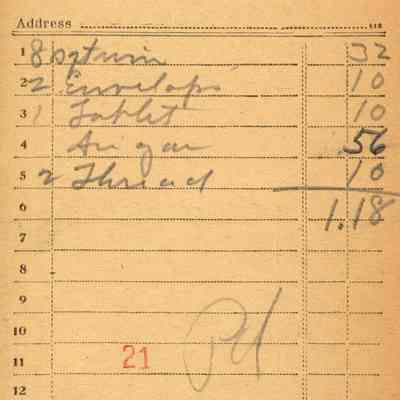 Address
1 8 32
2 2 Envelops 10
3 1 Tablet 10
4 56
5 2 Thread 10
6 1.18
7
8
9
10
11 21
12
Pd